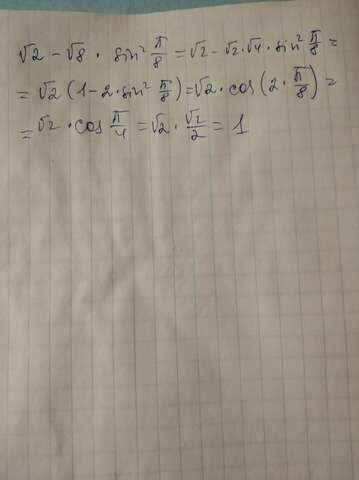 √2 - √8 · sin² π/8 = √2 - √2 · √4 · sin² π/8 =
= √2 (1 - 2 · sin² π/8) = √2 · cos (2 · π/8) =
= √2 · cos π/4 = √2 · √2/2 = 1